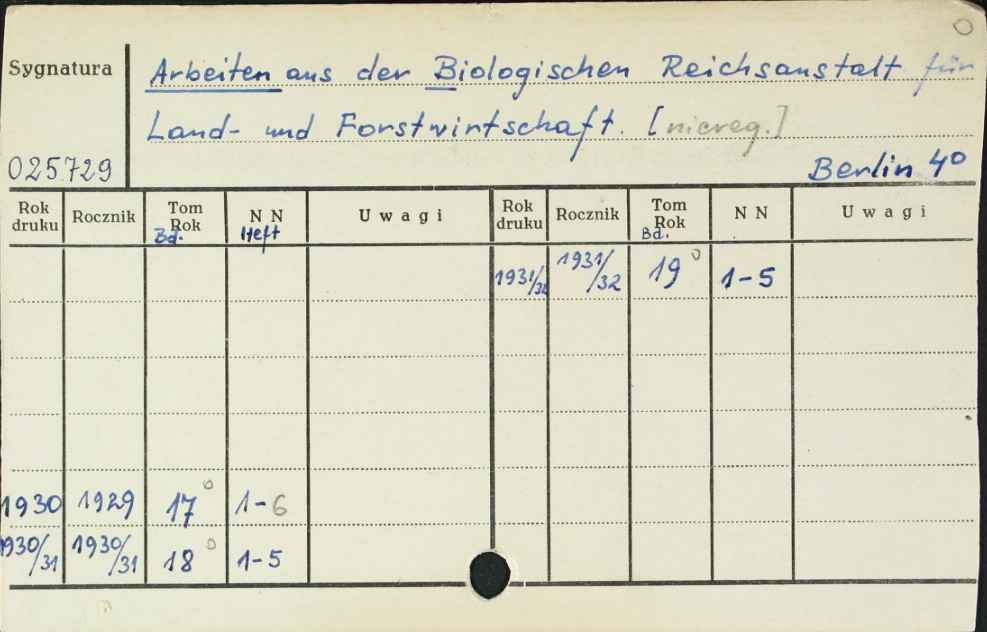 Sygnatura
Arbeiten aus der Biologischen Reichsanstalt für
Land- und Forstwirtschaft. [niereg.]
025729
Berlin 4°
Rok druku Rocznik Tom Rok Bd. N N Heft Uwagi Rok druku Rocznik Tom Rok Bd. N N Uwagi
1931/32 1931/32 19° 1-5
1930 1929 17° 1-6
1930/31 1930/31 18° 1-5